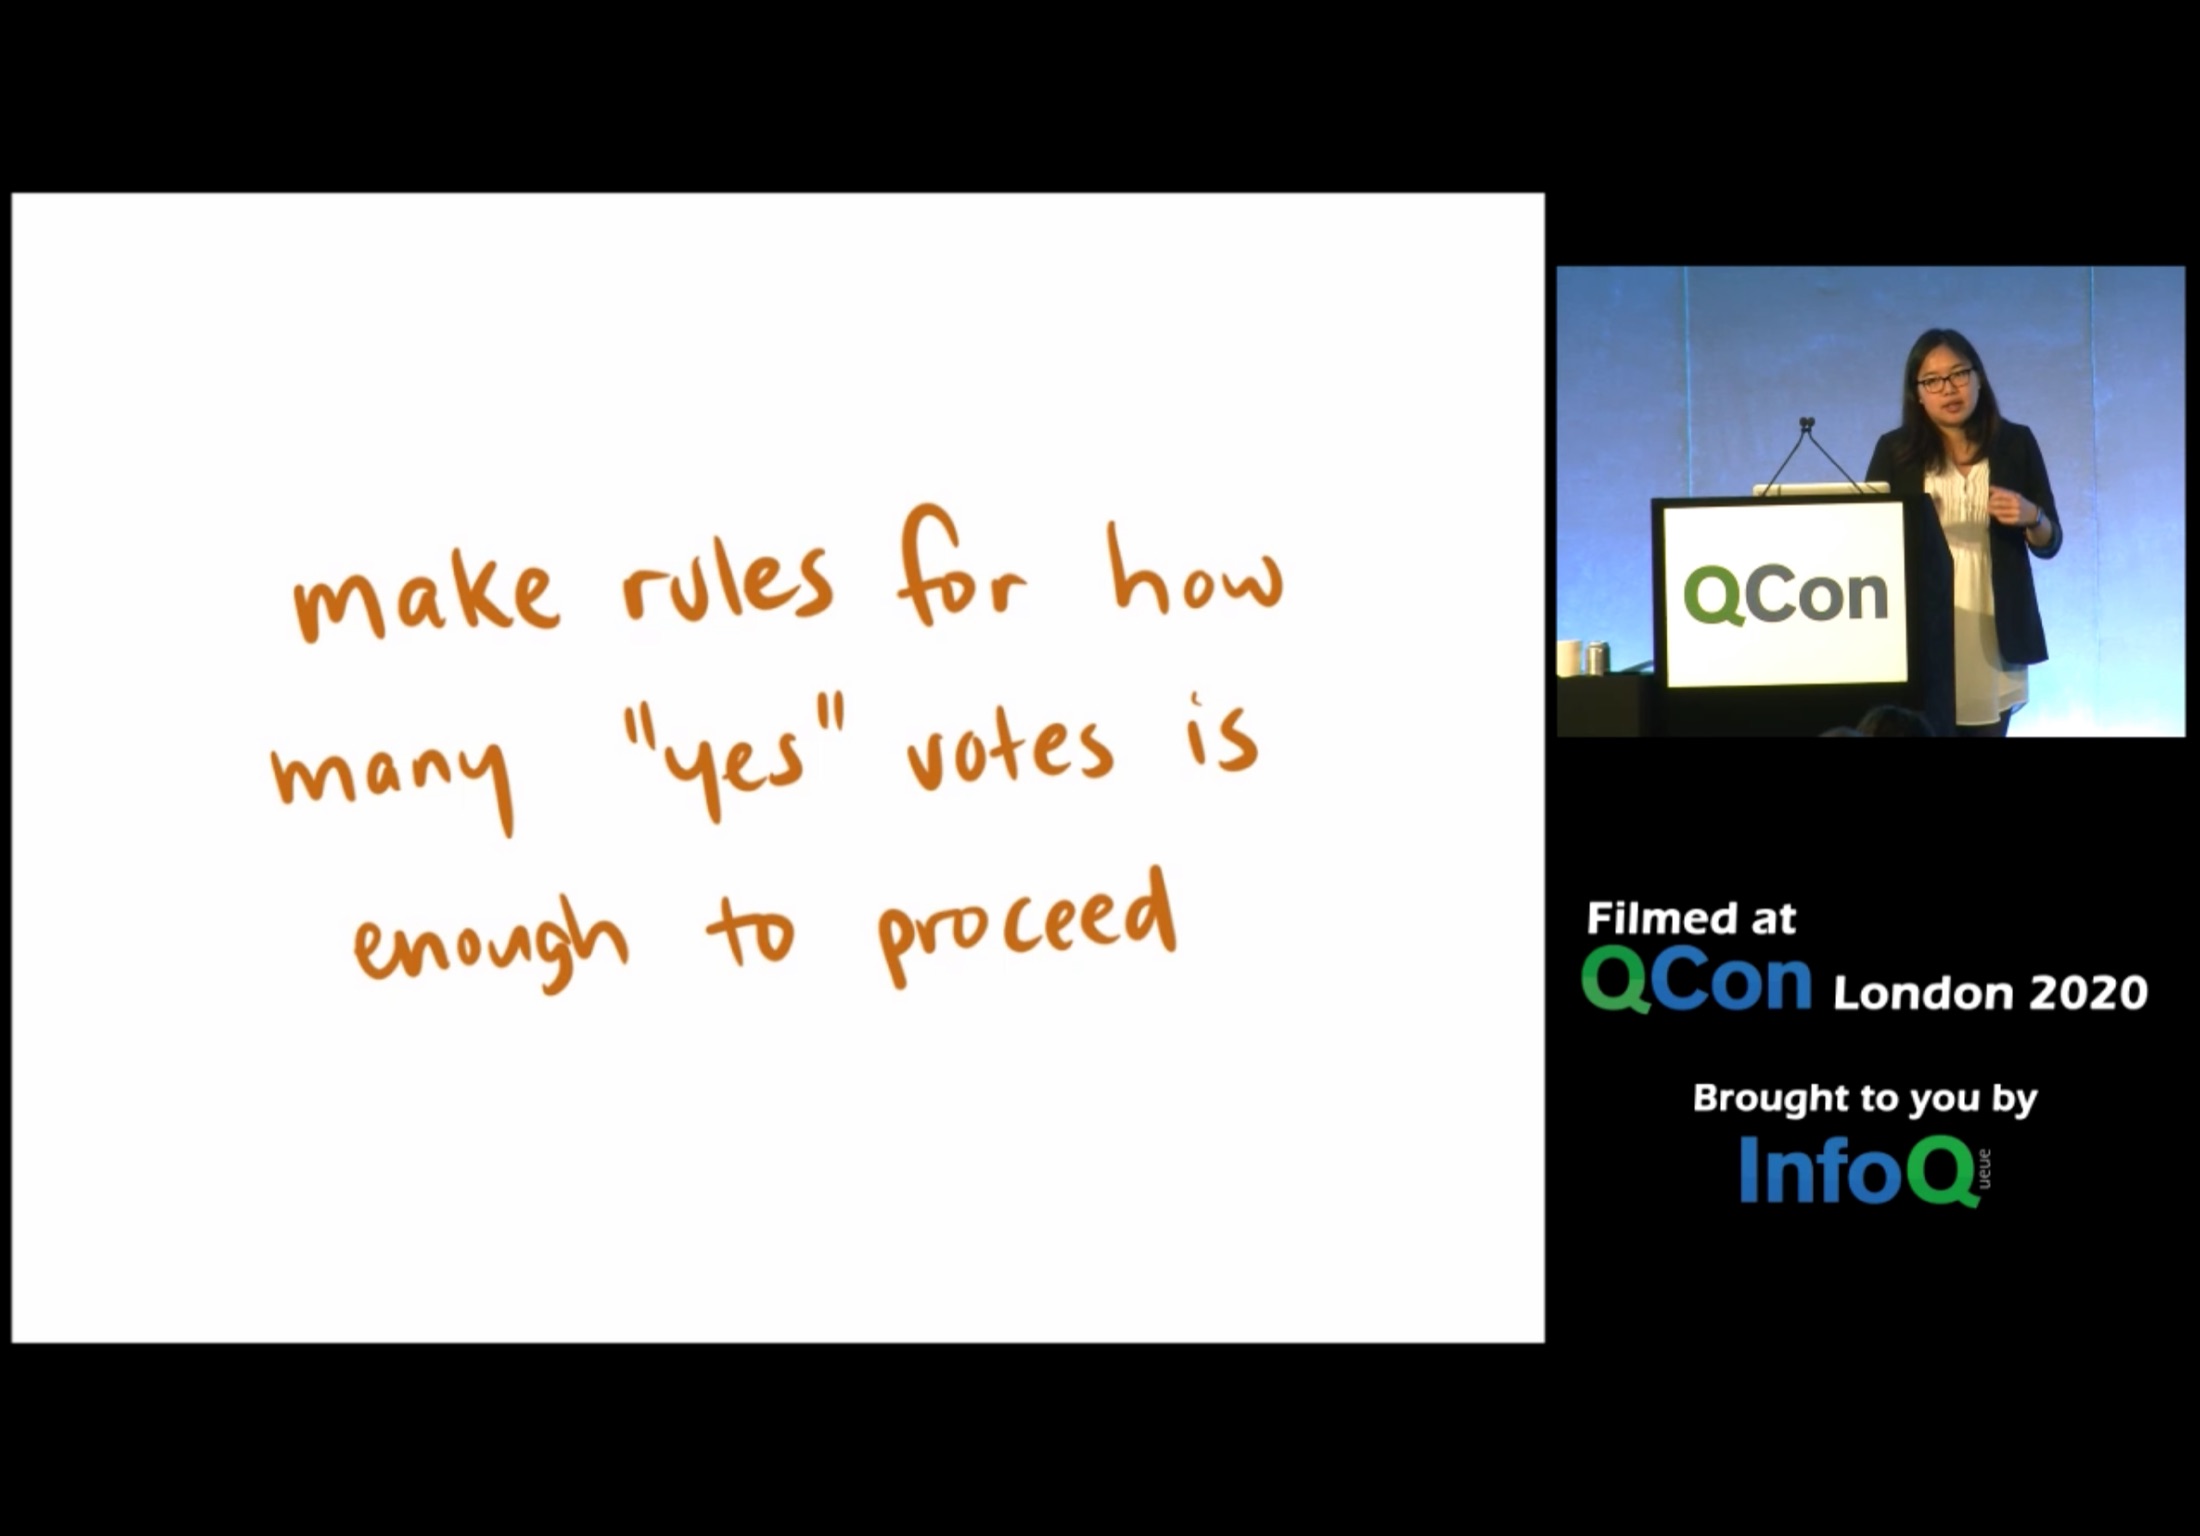 make rules for how
many "yes" votes is
enough to proceed
QCon
Filmed at
QCon London 2020
Brought to you by
InfoQ
ueue